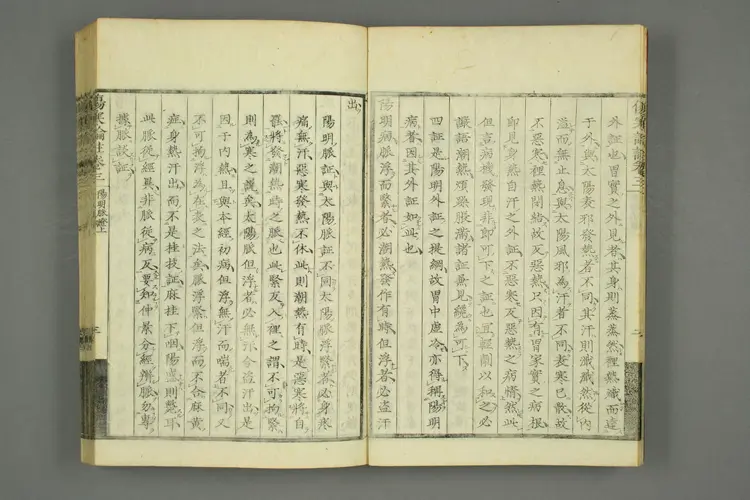 外証也胃實之外見者其身則蒸蒸然裡熱熾而達
于外與太陽表邪發熱者不同其汗則濈濈然從內
溢而無止息與太陽風邪為汗者不同表寒已散故
不惡寒裡熱閉結故反惡熱只因有胃家實之病根
即見身熱自汗之外証不惡寒反惡熱之病情然此
但言病機發現非即可下之証也宜輕劑以和之必
譫語潮熱煩躁脹滿諸証兼見纔為可下
四証是陽明外証之提綱故胃中虛冷亦得稱陽明
病者因其外証如此也
陽明病脈浮而緊者必潮熱發作有時但浮者必盜汗
出
陽明脈証與太陽脈証不同太陽脈浮緊者必身疼
痛無汗惡寒發熱不休此則潮熱有時是惡寒將自
罷將發熱時之脈也此緊反入裡之謂不可拘緊
則為寒之說矣太陽脈但浮者必無汗今盜汗出是
因于內熱且與本經初病但浮無汗而喘者不同又
不可拘浮為在表之法矣脈浮緊但浮而不合麻黃
症身熱汗出而不是桂枝証麻桂下咽陽盛則斃耳
此脈從經異非脈從病反要知仲景分經辨脈勿專
據脈談証
傷寒論註卷三 陽明脈證上 三